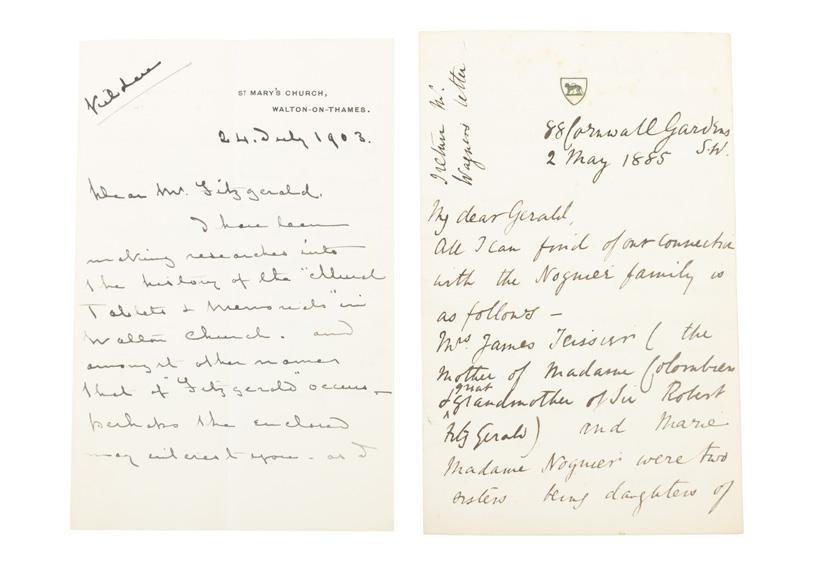 ST MARY'S CHURCH,
WALTON-ON-THAMES.
24. July 1903.
Dear Mr. Fitzgerald.
I have been
making researches into
the history of the "Mural
Tablets & Memorials" in
Walton Church. and
amongst other names
that of "Fitzgerald" occurs -
perhaps the enclosed
may interest you - as I
Return Mr.
Wagner's letter -
88 Cornwall Gardens
S.W.
2 May 1885
My dear Gerald,
All I can find of our connection
with the Noguier family is
as follows -
Mrs James Teissier ( the
mother of Madame Colombier
& great grandmother of Sir Robert
FitzGerald) and Marie
Madame Noguier were two
sisters being daughters of